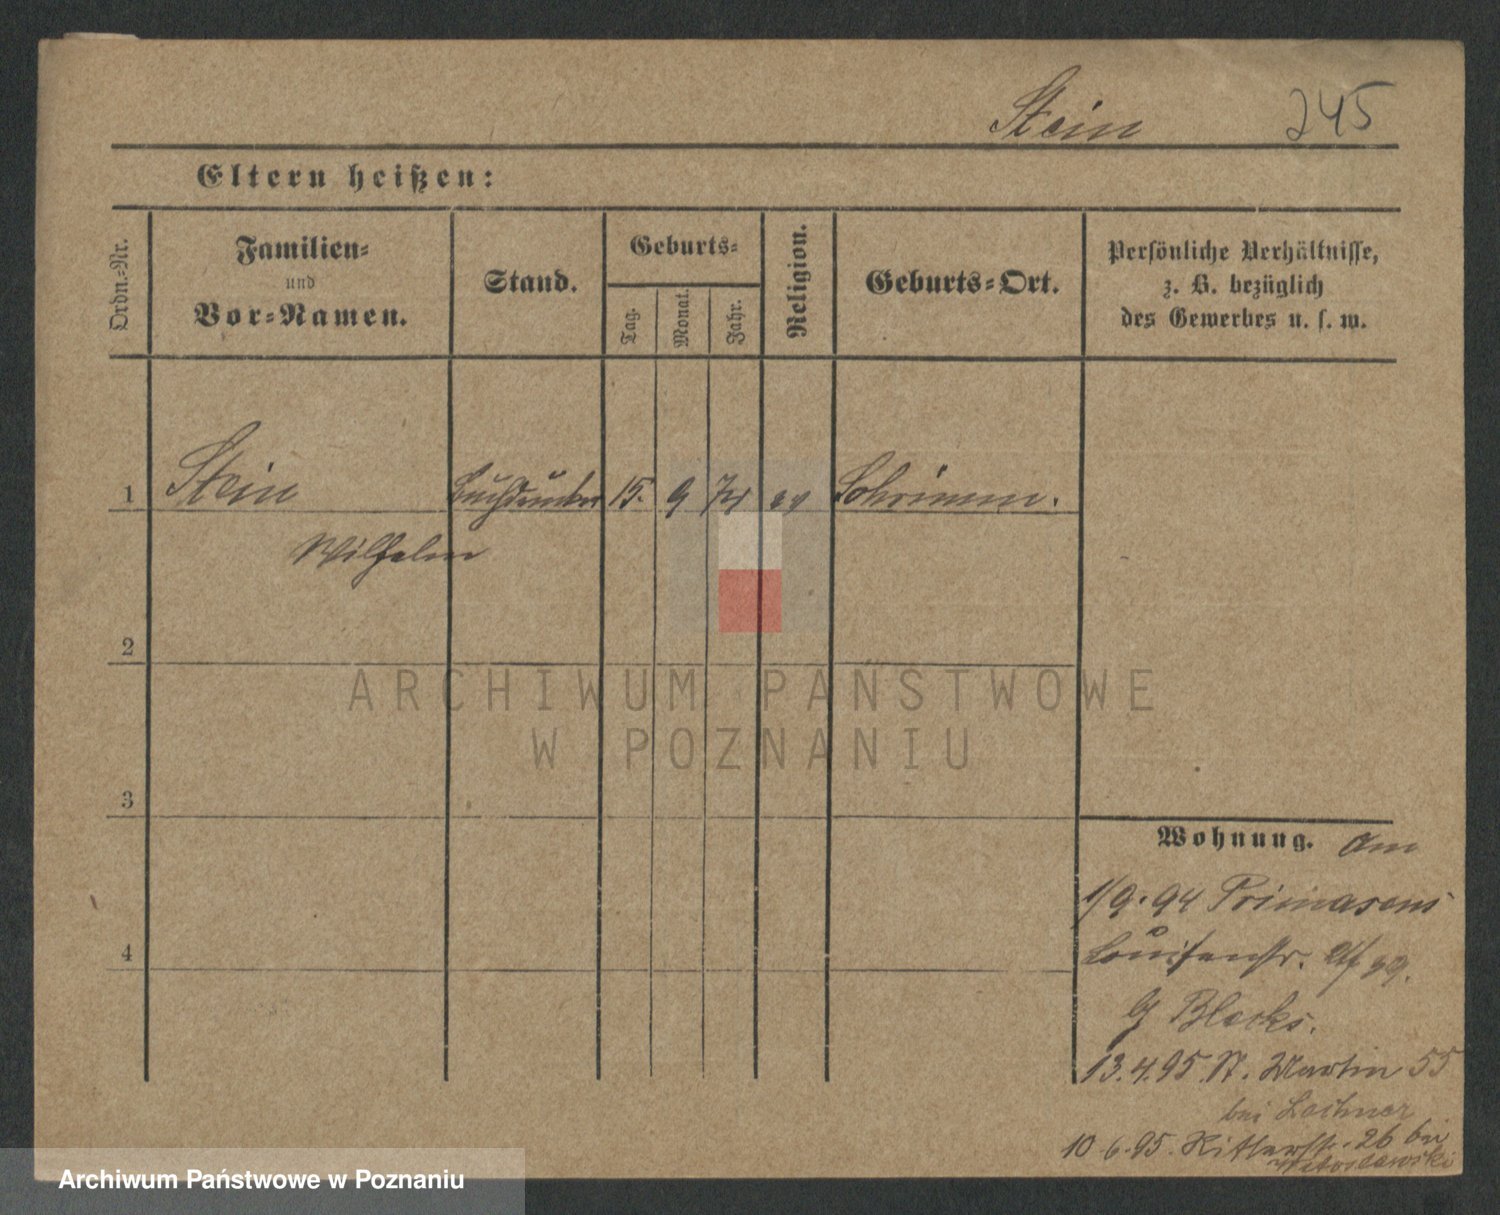 Stein 245
Eltern heißen:
Ordn.-Nr.
Familien-
und
Vor-Namen.
Stand.
Geburts-
Tag.
Monat.
Jahr.
Religion.
Geburts-Ort.
Persönliche Verhältnisse,
z. B. bezüglich
des Gewerbes u. s. w.
1 Stein Buchdrucker 15. 9 74 ev Schrimm.
Wilhelm
2
ARCHIWUM PAŃSTWOWE
W POZNANIU
3
Wohnung. Am
1/9.94 Primasens
Louisenstr.
13.4.95 St. Martin 55
bei
10.6.95. Ritterstr. 26 bei
Archiwum Państwowe w Poznaniu
4